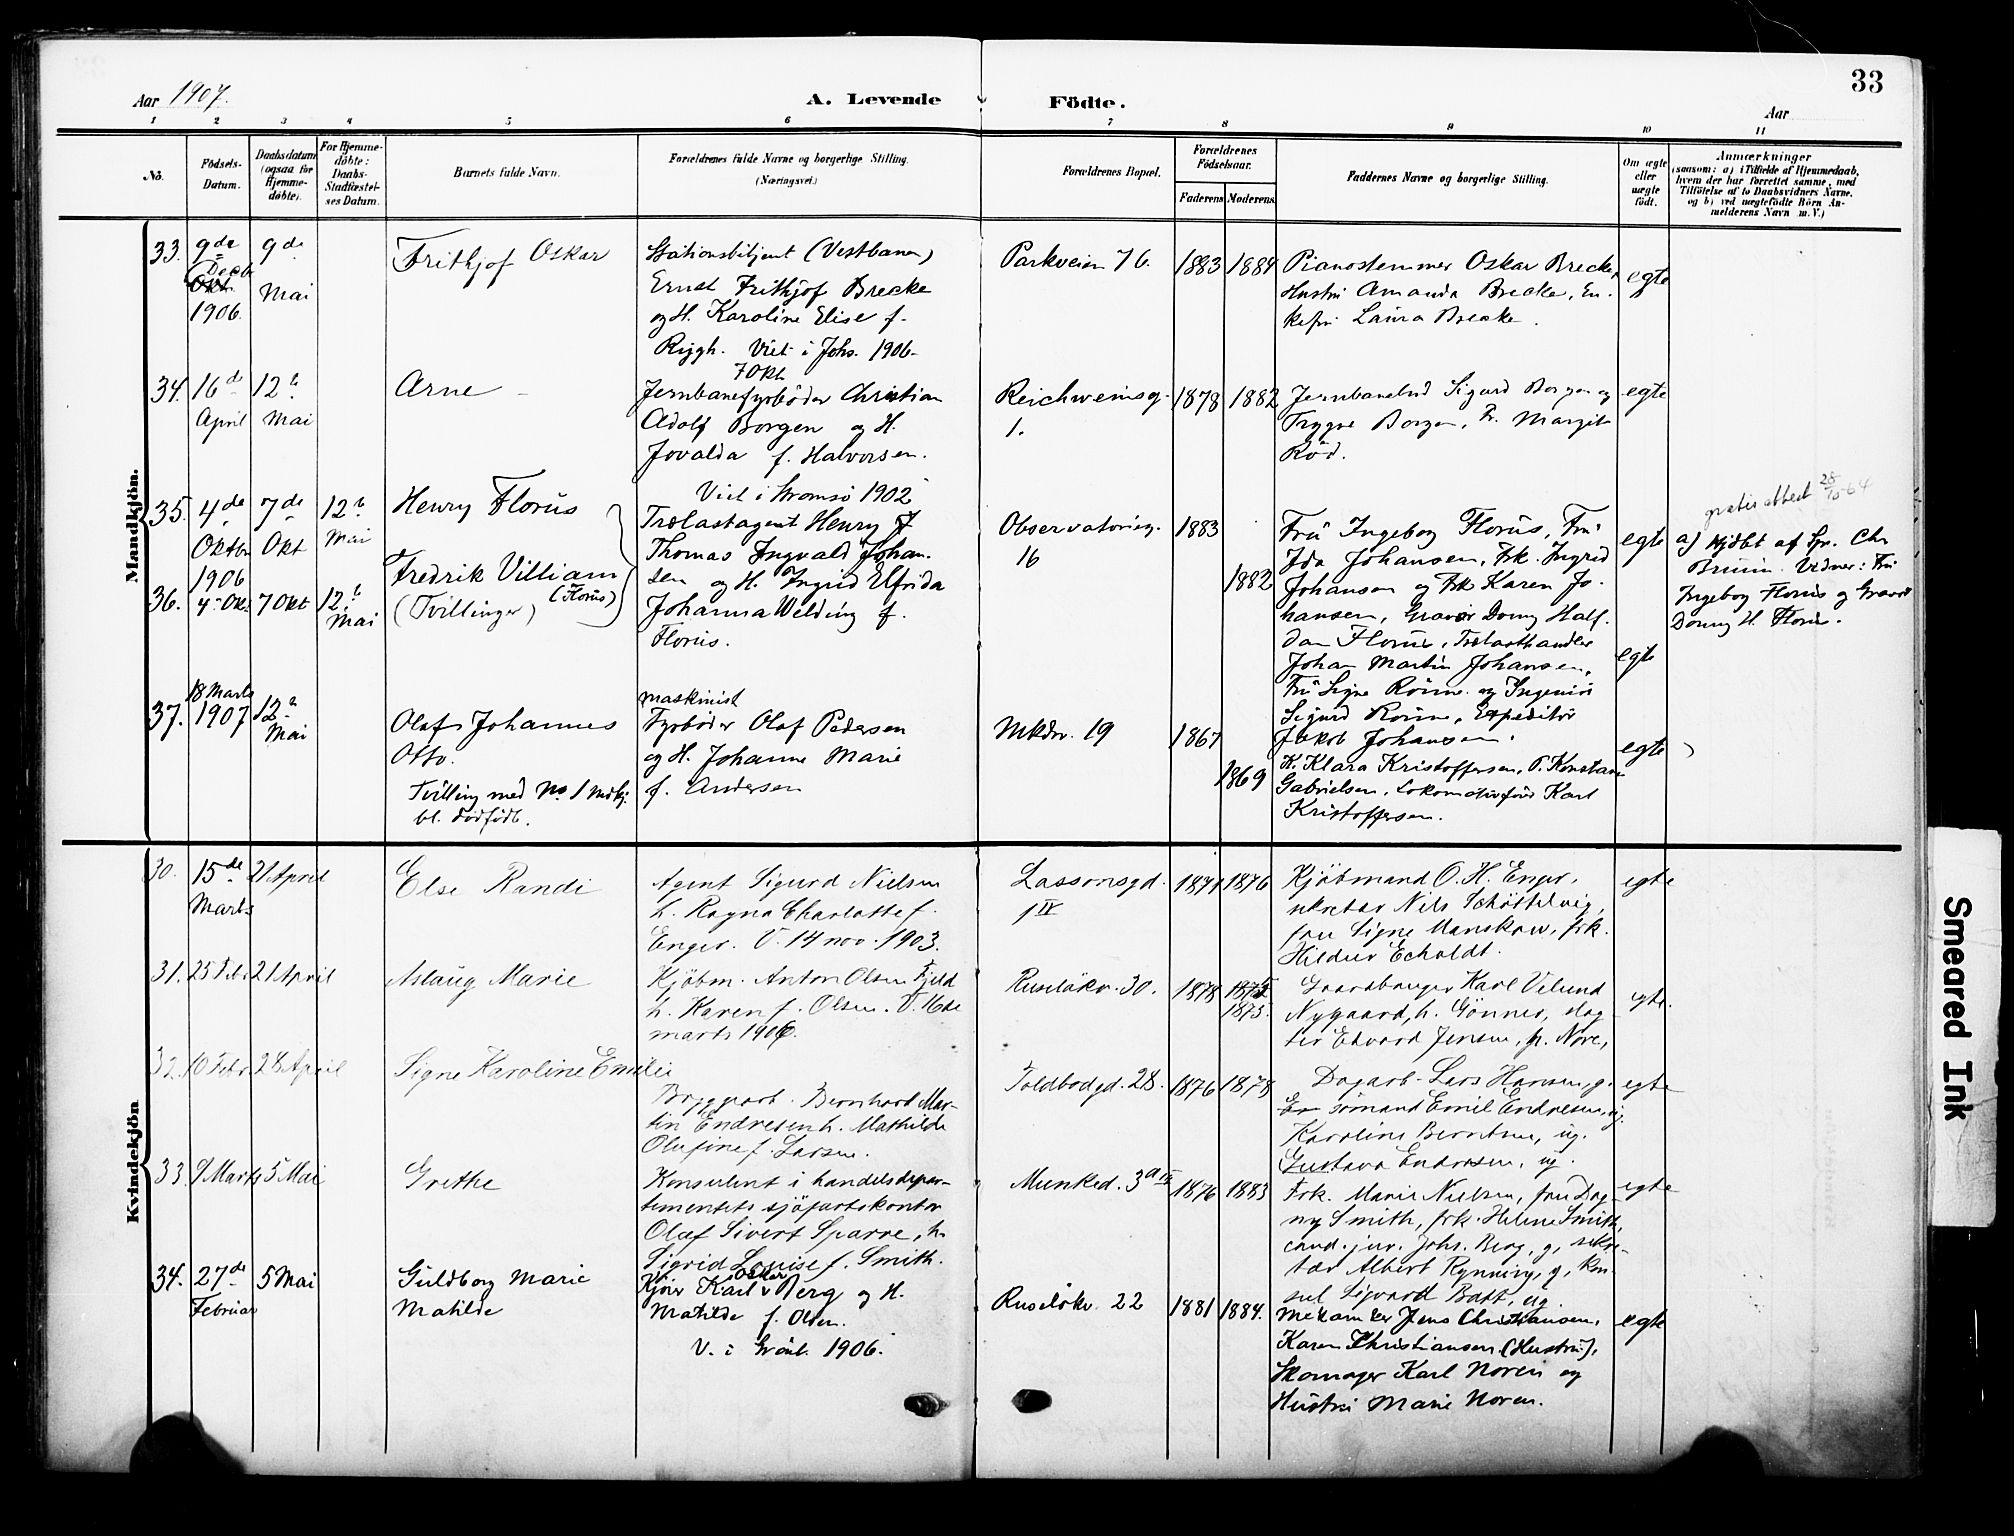 33
Aar 1907.
A. Levende Födte.
Aar
1 2 3 4 5 6 7 8 9 10 11
No.
Födsels-
Datum.
Daabsdatum
(ogsaa for
Hjemme-
döbte).
For Hjemme-
döbte:
Daabs-
Stadfæstel-
ses Datum.
Barnets fulde Navn.
Forældrenes fulde Navne og borgerlige Stilling.
(Næringsvei.)
Forældrenes Bopæl.
Forældrenes
Födselsaar.
Faderens Moderens
Faddernes Navne og borgerlige Stilling.
Om ægte
eller
uægte
födt.
Anmærkninger
(saasom: a) i Tilfælde af Hjemmedaab,
hvem der har forrettet samme, med
Tilföielse af to Daabsvidners Navne,
og b) ved uægtefödte Börn An-
melderens Navn m. V.)
Mandkjön.
33. 9de
Decb
Okt.
1906.
9de
Mai
Frithjof Oskar
Stationsbetjent (Vestbanen)
Ernst Frithjof Brecke
og H. Karoline Elise f.
Rygh. Viet i Johs. 1906-
7 Okt
Parkveien 76.
1883 1884
Pianostemmer Oskar Brecke,
Hustru Amanda Brecke, En-
kefru Laura Brecke.
egte
34. 16de
April
12te
Mai
Arne
Jernbanefyrböder Christian
Adolf Borgen og H.
Jovalda f. Halvorsen.
Viet i Strömsö 1902
Reichweinsg.
1.
1878 1882
Jernbanebud Sigurd Borgen og
Trygve Borgen, Fr. Margit
Röd.
egte
35. 4de
Oktbr
1906
7de
Okt
12te
Mai
Henry Florus
Trælastagent Henry J
Thomas Ingvald Johan-
sen og H. Ingrid Elfrida
Johanna Welding f.
Florus.
Observatorieg.
16
1883
1882
Fru Ingeborg Florus, Fru
Ida Johansen, Frk. Ingrid
Johansen og Frk Karen Jo-
hansen, Gravør Donny Half-
dan Florus, Trælasthandler
Johan Martin Johansen,
Fru Signe Ronne og Ingeniör
Sigurd Ronne, Expeditör
Jakob Johansen.
egte
gratis attest 28/10-64
a) Hjdbt af Spr. Chr
Bruun. Vidner: Fru
Ingeborg Florus og Gravør
Donny H. Florus.
36. 4-Okt
7 Okt
12te
Mai
Fredrik Villiam
(Florus)
(Tvillinger)
egte
37. 18 Marts
1907
12te
Mai
Olaf Johannes
Otto.
Tvilling med No 1 Mdkj.
bl. dödfödt.
maskinist
Fyrböder Olaf Pedersen
og H. Johanne Marie
f. Andersen
Mkdv. 19
1867
1869
K. Klara Kristoffersen, P. Konstanse
Gabrielsen, Lokomotivförer Karl
Kristoffersen.
egte
Kvindekjön
30. 15de
Marts
21 April
Else Randi
Agent Sigurd Nielsen
h. Ragna Charlotte f.
Enger. V. 14 nov. 1903.
Lassonsgd.
1 IV
1871 1876
Kjöbmand O. H. Enger,
sekretær Nils Schöttelvig,
fru Signe Manskow, frk.
Hildur Echoldt.
egte
31. 25 Feb. 21 April
Aslaug Marie
Kjöbm. Anton Olsen Fjeld
h. Karen f. Olsen. V. 16de
marts 1906.
Ruselökv. 30.
1878 1875
1875.
Gaardbruger Karl Velund
Nygaard, h. Gönner, slag-
ter Edvard Jensen, fr. Nore,
egte.
32. 10 Febr. 28 April
Signe Karoline Emilie
Bryggearb. Bernhard Mar-
tin Endresen h. Mathilde
Olufine f. Larsen.
Toldbodgd. 28.
1876 1878
Dagarb. Lars Hansen, g.
sömand Emil Endresen, ug.
Karoline Berntsen, ug.
Gustava Endresen, ug.
egte
33. 9 Marts 5 Mai
Grethe
Konsulent i handelsdepar-
tementets sjöfartskontor
Olaf Sivert Sparre, h.
Sigrid Louise f. Smith.
Munked. 3a IV
1876 1883
Frk. Marie Nielsen, fru Dag-
ny Smith, frk. Helene Smith,
cand. jur. Johs. Berg, g, sekre-
tær Albert Rynning, g, kon-
sul Sigvard Batt, ug.
egte
34. 27de
Februar
5 Mai
Guldborg Marie
Matilde
Kjörer Karl Oskar Berg og H.
Matilde f. Olsen.
V. i Grönl. 1906.
Ruselökv. 22
1881 1884.
Mekaniker Jens Christiansen,
Karen Christiansen (Hustru),
Skomager Karl Noren og
Hustru Marie Noren.
egte
Smeared Ink